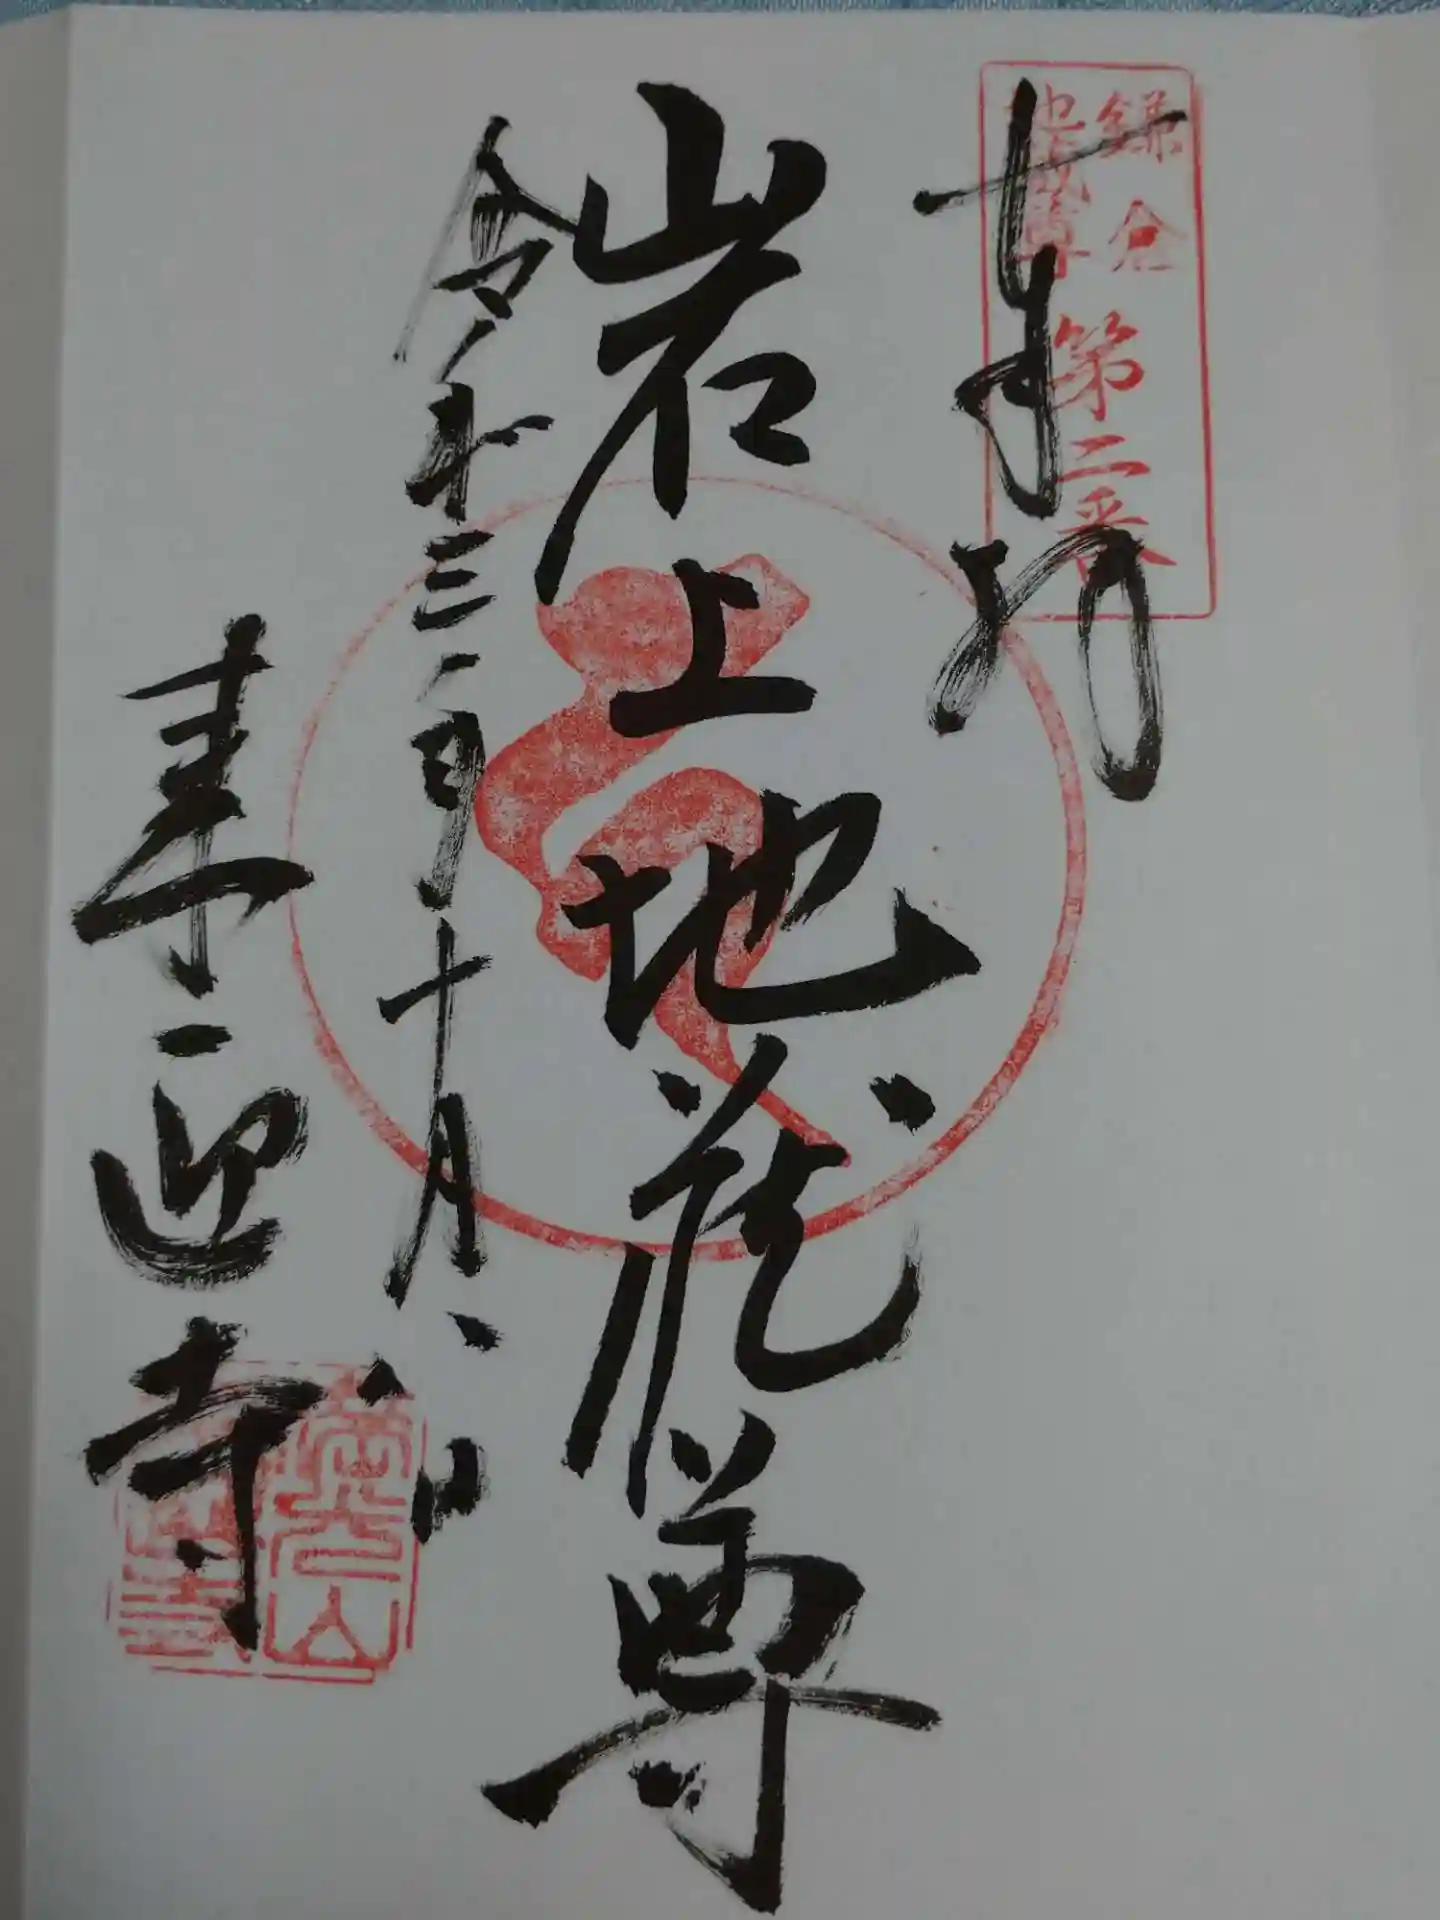 鎌倉
地蔵尊
第二番
奉拝
岩上地蔵尊
令和三年十月八日
来迎寺
満光山